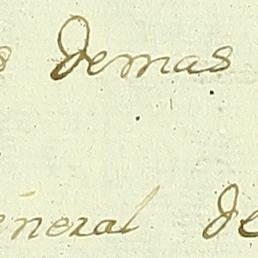 s demas
eneral de